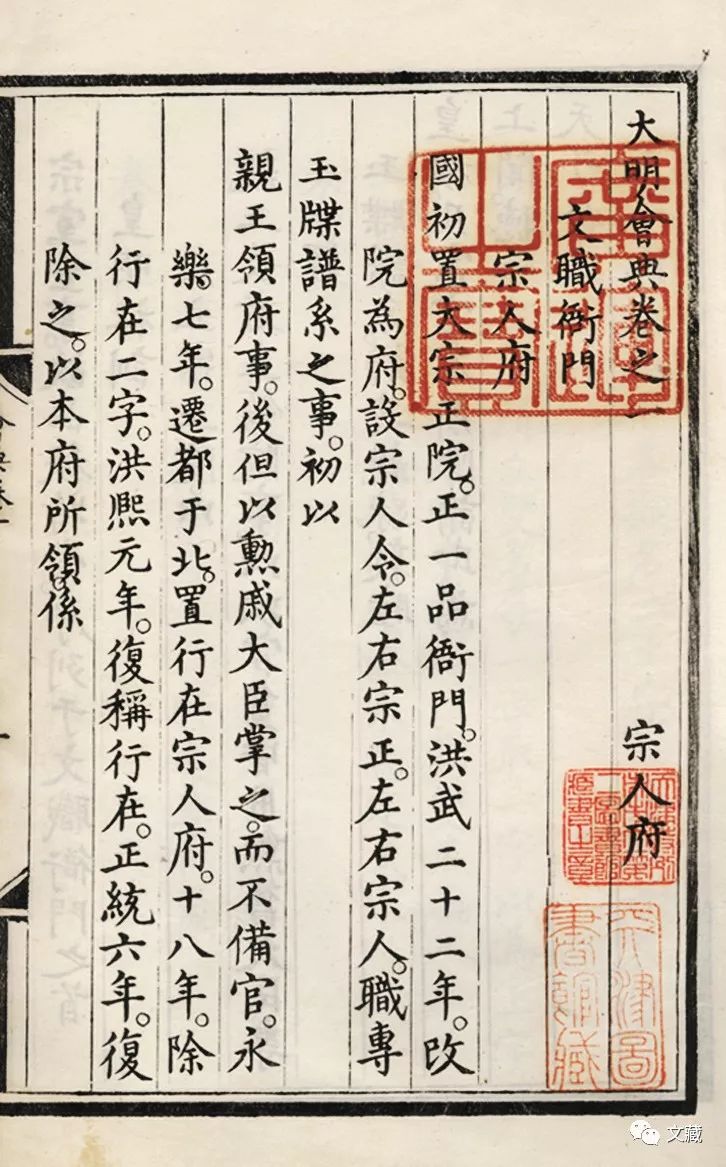 大明會典卷之一 宗人府
文職衙門
宗人府
國初置大宗正院。正一品衙門。洪武二十二年。改
院為府。設宗人令。左右宗正。左右宗人。職專
玉牒譜系之事。初以
親王領府事。後但以勳戚大臣掌之。而不備官。永
樂七年。遷都于北。置行在宗人府。十八年。除
行在二字。洪熙元年。復稱行在。正統六年。復
除之。以本府所領。係
天津圖
書館藏
文藏